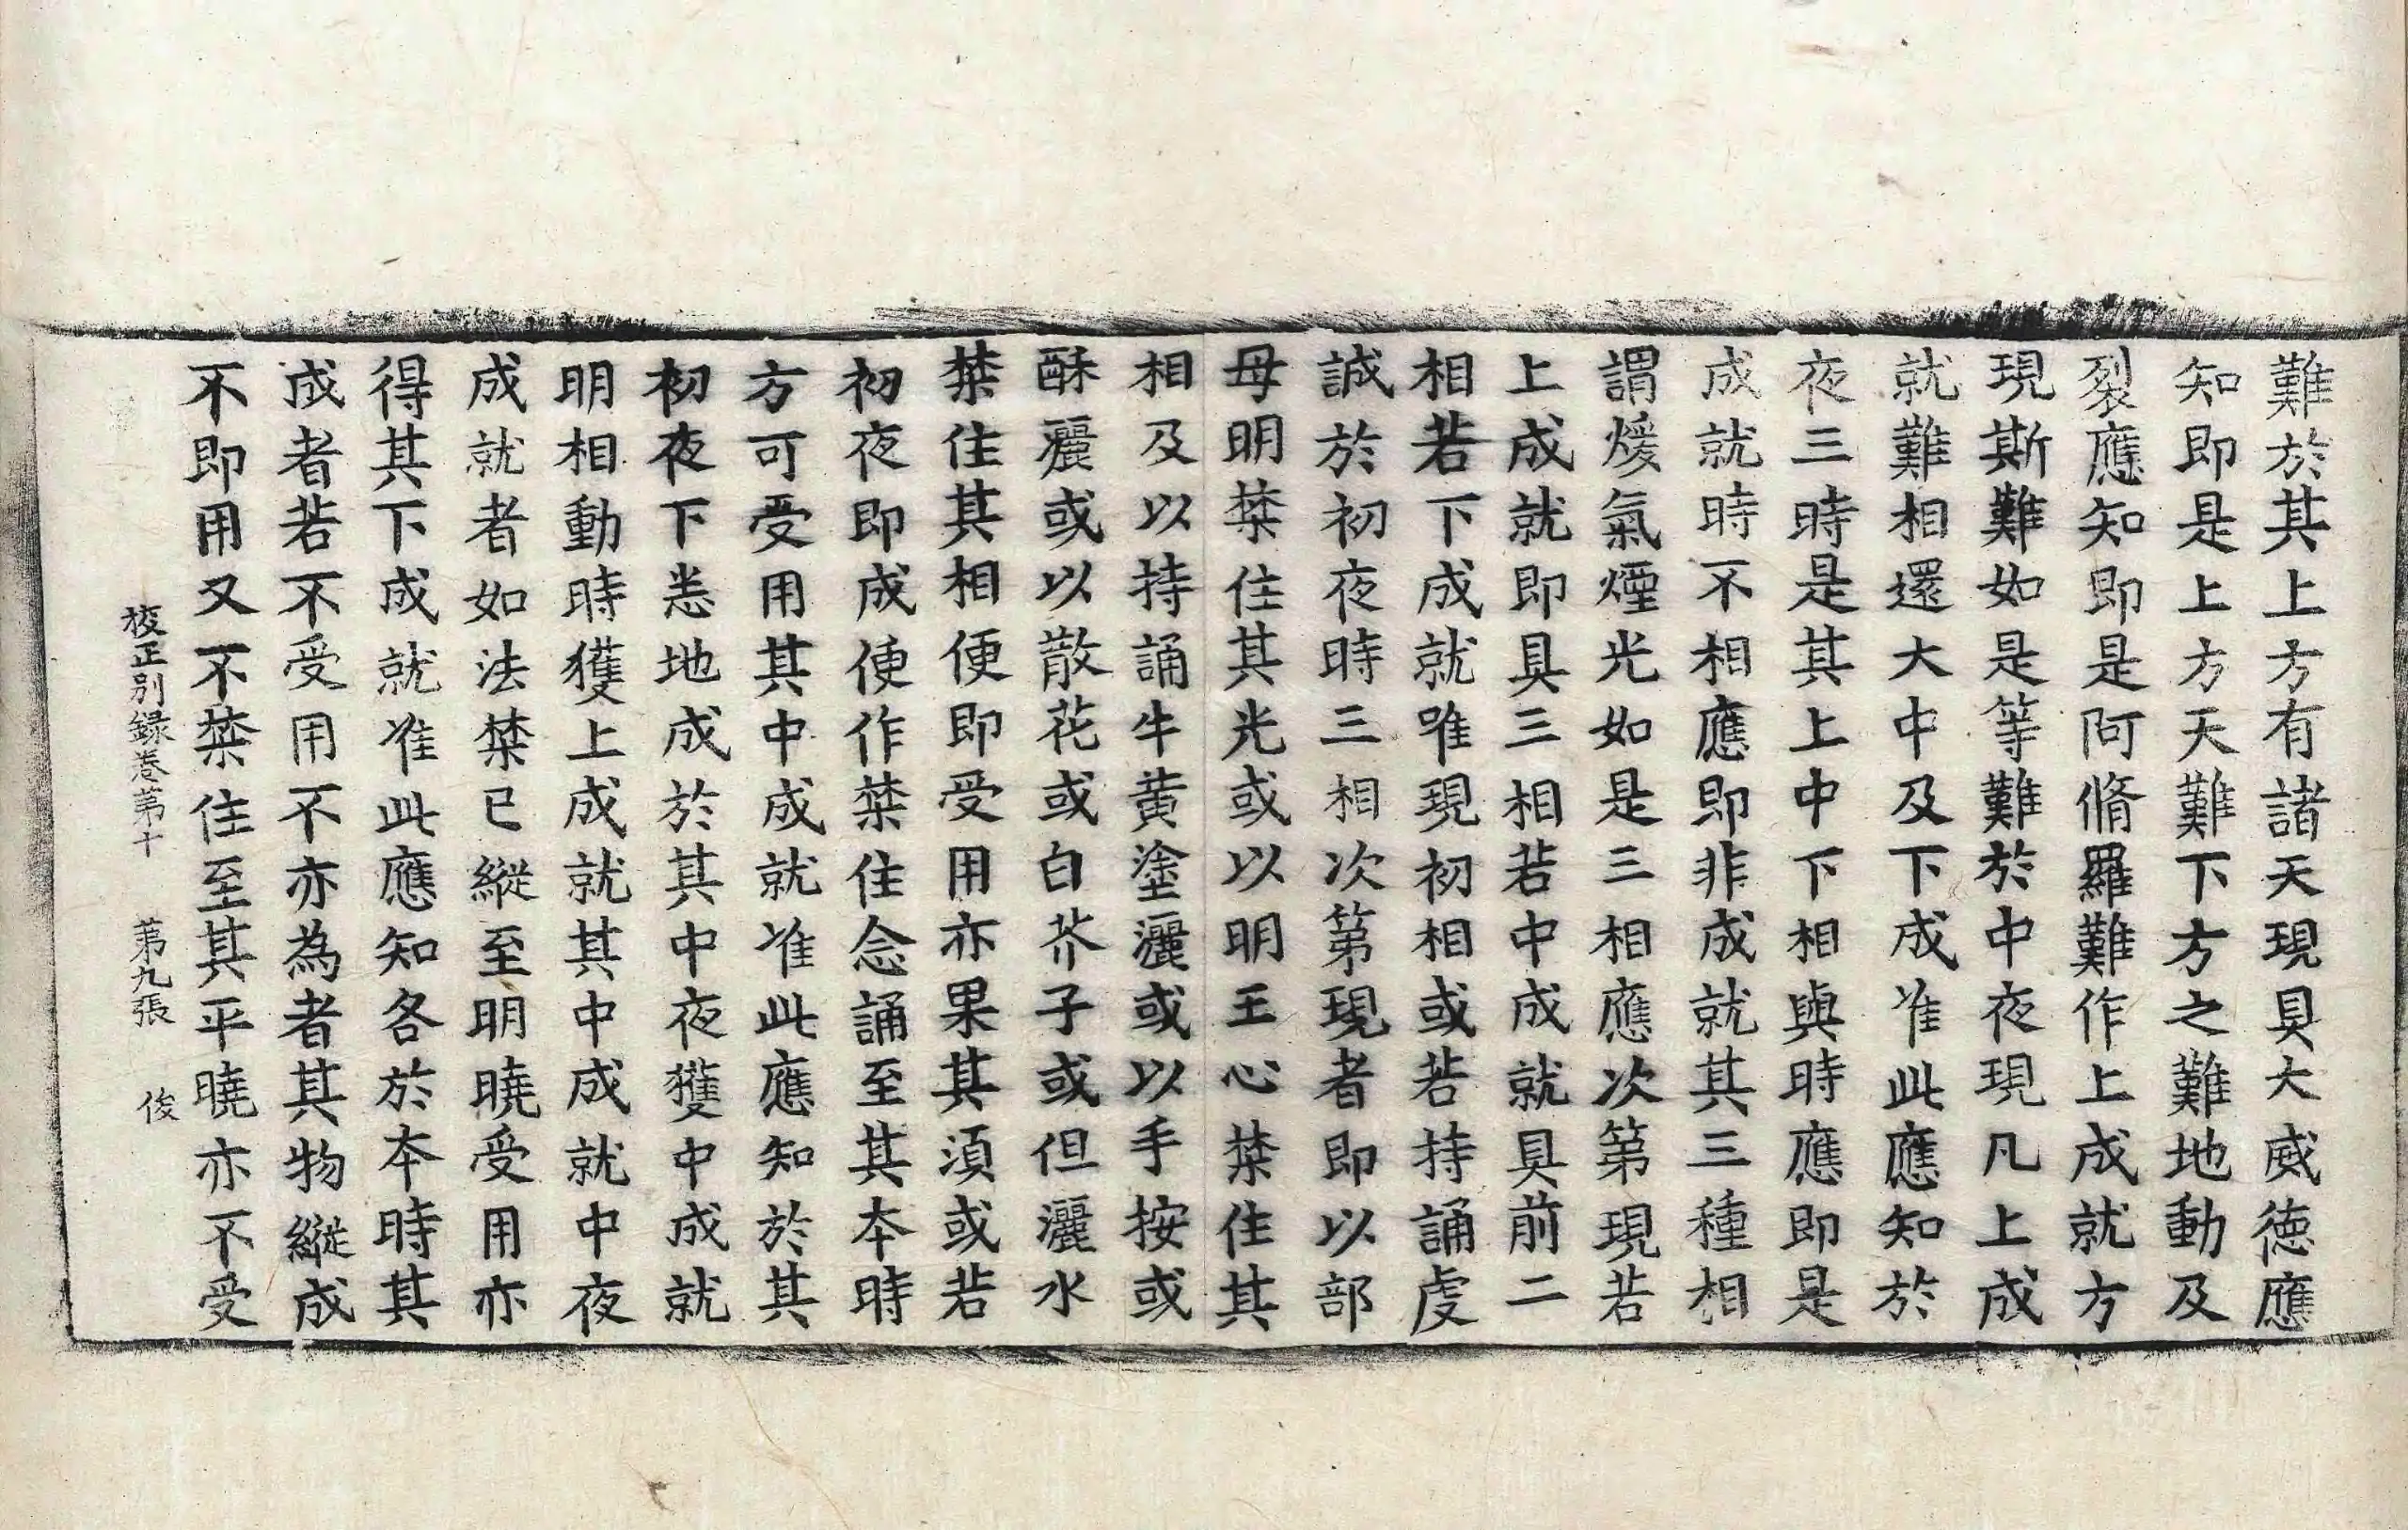 難於其上方有諸天現具大威德應
知即是上方天難下方之難地動及
裂應知即是阿脩羅難作上成就方
現斯難如是等難於中夜現凡上成
就難相還大中及下成准此應知於
夜三時是其上中下相與時應即是
成就時不相應即非成就其三種相
謂煖氣煙光如是三相應次第現若
上成就即具三相若中成就具前二
相若下成就唯現初相或若持誦虔
誠於初夜時三相次第現者即以部
母明禁住其光或以明王心禁住其
相及以持誦牛黃塗灑或以手按或
酥灑或以散花或白芥子或但灑水
禁住其相便即受用亦果其湏或若
初夜即成便作禁住念誦至其本時
方可受用其中成就准此應知於其
初夜下悉地成於其中夜獲中成就
明相動時獲上成就其中成就中夜
成就者如法禁已縱至明曉受用亦
得其下成就准此應知各於本時其
成者若不受用不亦為者其物縱成
不即用又不禁住至其平曉亦不受
校正別録卷第十 第九張 俊